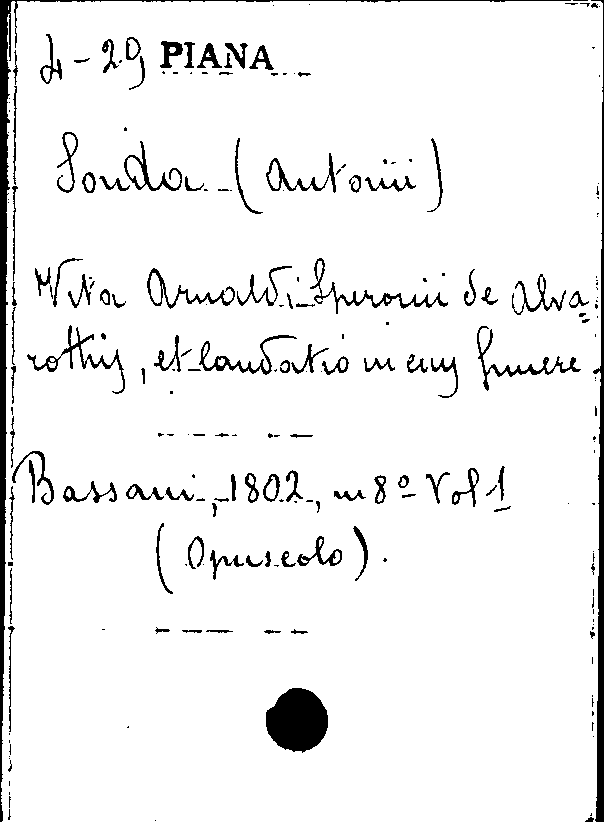 4-29 PIANA
Sonda (Antonii)
Vita Arnaldi Speronii de Alva=
rothis, et laudatio in eius funere.
Bassani, 1802, in 8º Vol 1
(Opuscolo).